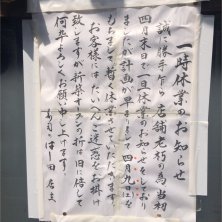 一時休業のお知らせ
誠に勝手乍ら店舗老朽の為当初
四月末日で一旦休業のお知らせをしており
ましたが計画が早まりまして四月九日を
もちまして暫く休業させていただきます。
お客様にはたいへんご迷惑をお掛け
致しますが新築オープンの折は旧に倍して
何卒よろしくお願い申し上げます。
店主